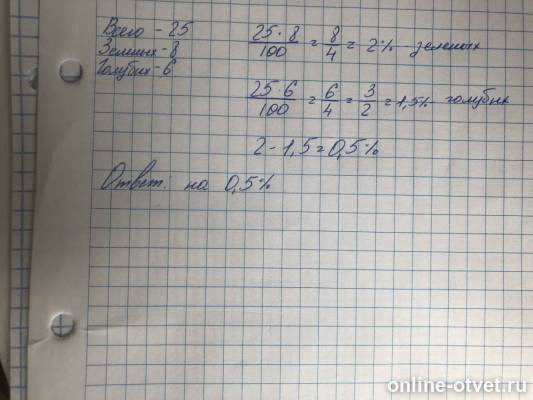 Всего - 25
Зеленых - 8
Голубых - 6
25·8/100 = 8/4 = 2% зеленых
25·6/100 = 6/4 = 3/2 = 1,5% голубых
2 - 1,5 = 0,5%
Ответ: на 0,5%
online-otvet.ru